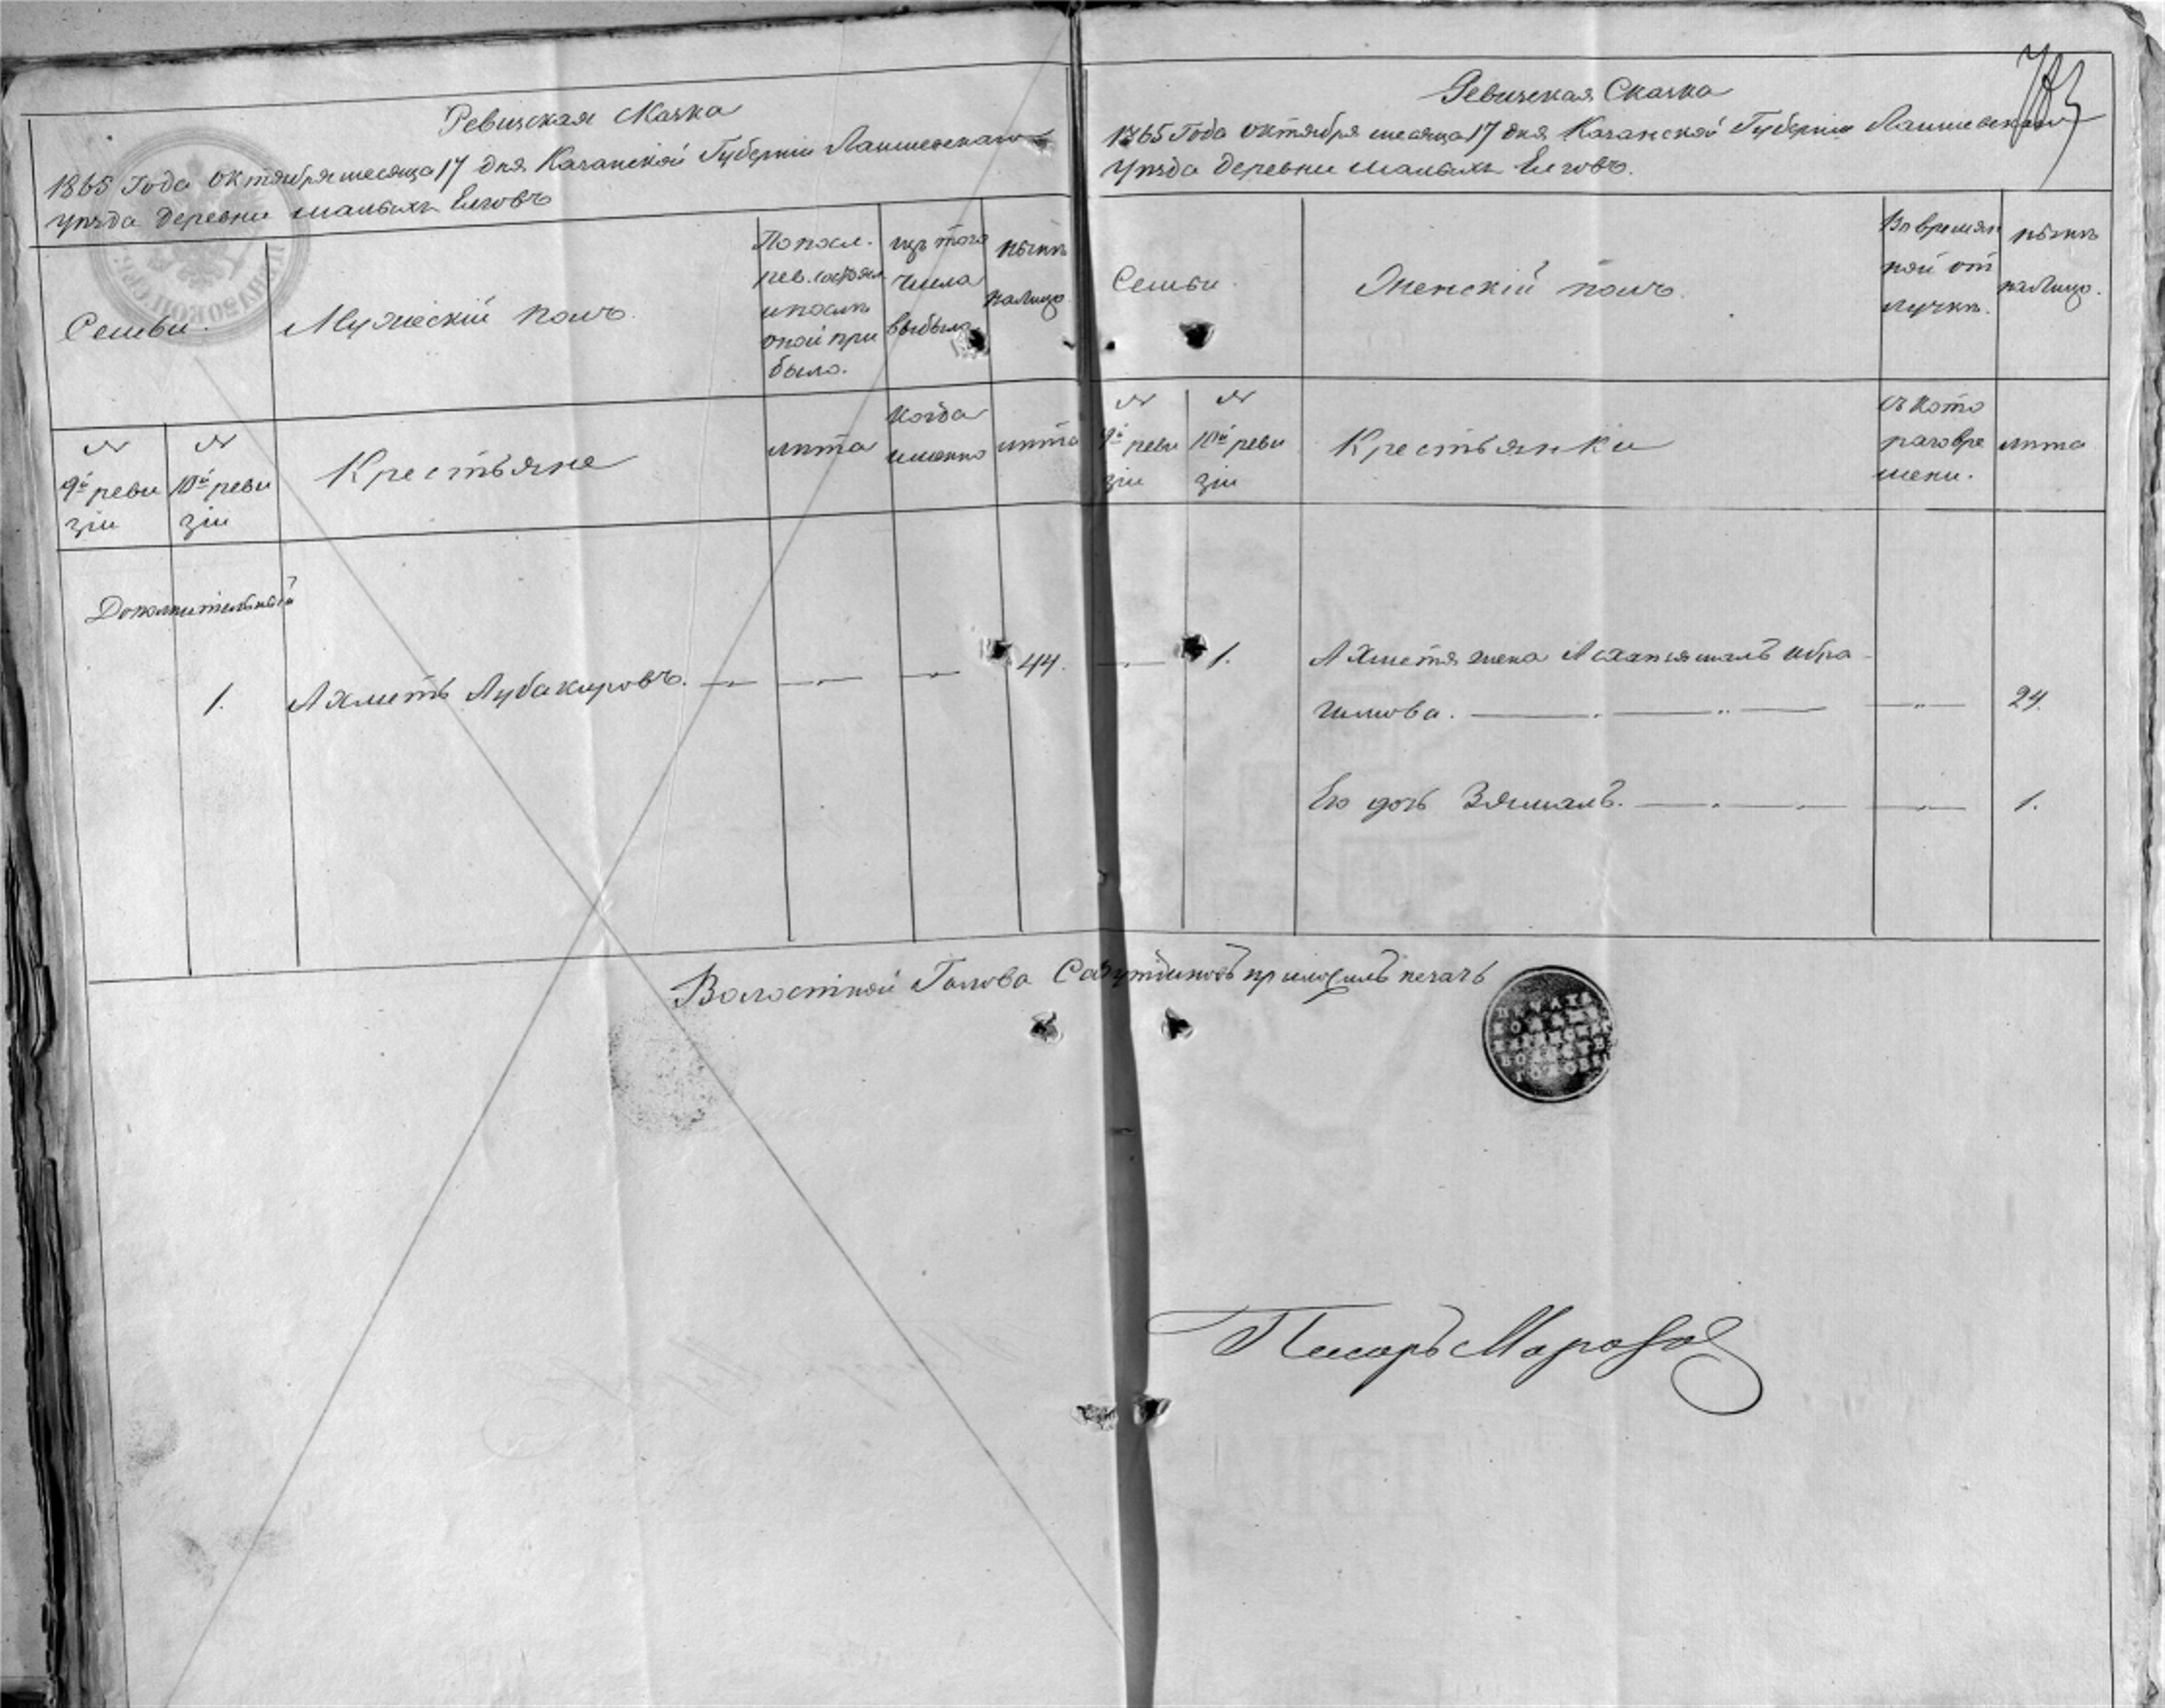 Ревизская Сказка
1865 Года октября месяца 17 дня Казанской Губерніи Лаишевскаго
уѣзда деревни малыхъ Елговъ
Семьи.
Мужескій полъ.
По посл.
рев. состоял
и послѣ
оной при
было.
изъ того
числа
выбыло.
нынѣ
налицо.
№
9й реви
зіи
№
10й реви
зіи
Крестьяне
лѣта
когда
именно
лѣта
Дополнительный
1. Ахметъ Аубакировъ. 44.
Ревизская Сказка
1865 Года октября месяца 17 дня Казанской Губерніи Лаишевскаго
уѣзда деревни малыхъ Елговъ.
Семьи.
Женскій полъ.
Во времян
ной от
лучкѣ.
нынѣ
налицо.
№
9й реви
зіи
№
10й реви
зіи
Крестьянки
съ кото
раго вре
мени.
лѣта
1. Ахметя жена Асхапжамалъ Ибра
гимова. 24.
Его дочь Зямалъ. 1.
Волостной Голова приложилъ печать
ПЕЧАТЬ
ВОЛОСТН
ГОЛОВЫ
Писарь Морозов